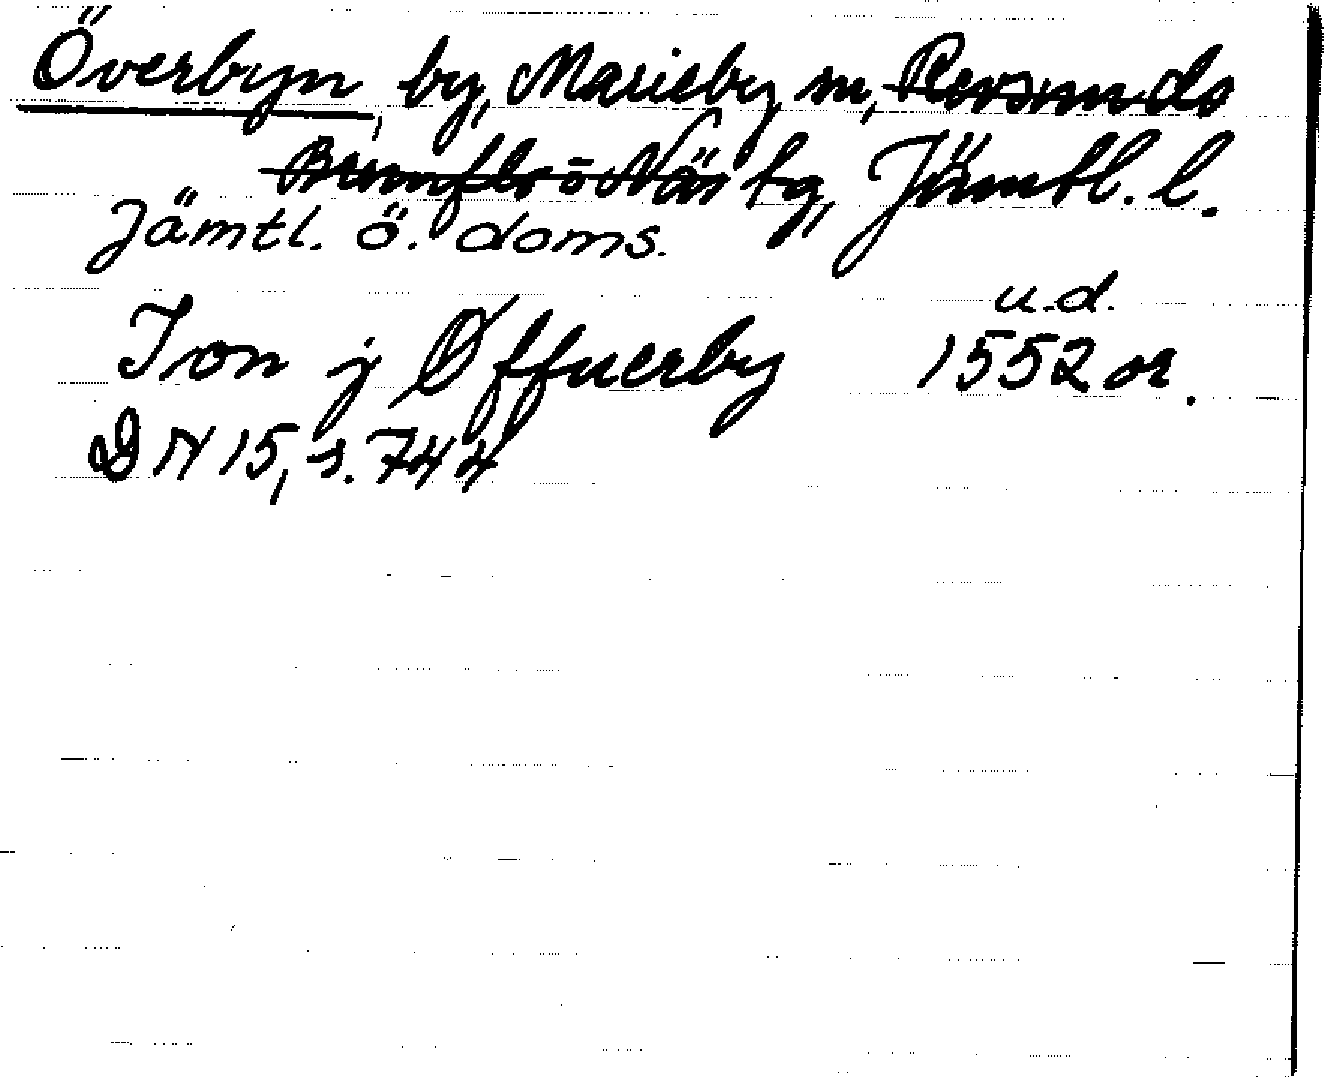 Överbyn, by, Marieby sn, Revsunds
Brunflo o Näs tg, Jämtl. l.
Jämtl. ö. doms.
u.d.
Jon j Øffuerby 1552 or.
DN 15, s. 744